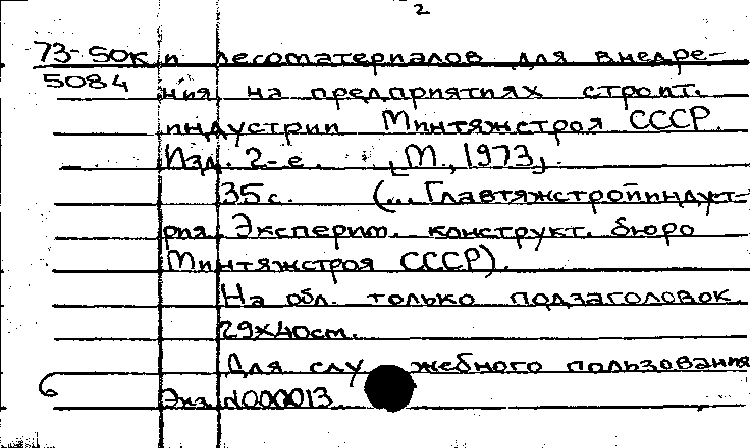 2
73-50к и лесоматериалов для внедре-
5084 ния на предприятиях строит.
индустрии Минтяжстроя СССР.
Изд. 2-е. [М., 1973].
35 с. (... Главтяжстройиндуст-
рия. Эксперим. конструкт. бюро
Минтяжстроя СССР).
На обл. только подзаголовок.
29х40cm.
Для служебного пользования
6 Экз. №000013